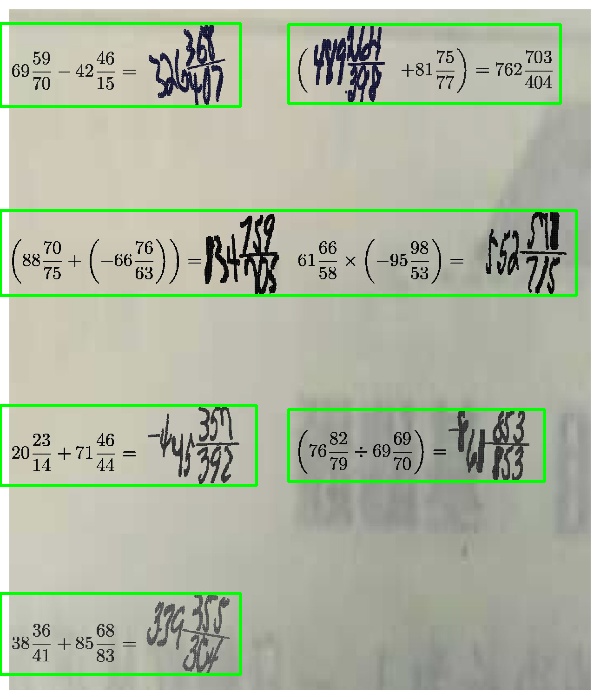 $69\frac{59}{70} - 42\frac{46}{15} = 326\frac{368}{407}$
$\left(489\frac{264}{398} + 81\frac{75}{77}\right) = 762\frac{703}{404}$
$\left(88\frac{70}{75} + \left(-66\frac{76}{63}\right)\right) = 834\frac{759}{705}$
$61\frac{66}{58} \times \left(-95\frac{98}{53}\right) = 552\frac{578}{715}$
$20\frac{23}{14} + 71\frac{46}{44} = -445\frac{357}{392}$
$\left(76\frac{82}{79} \div 69\frac{69}{70}\right) = -868\frac{853}{853}$
$38\frac{36}{41} + 85\frac{68}{83} = 339\frac{355}{304}$